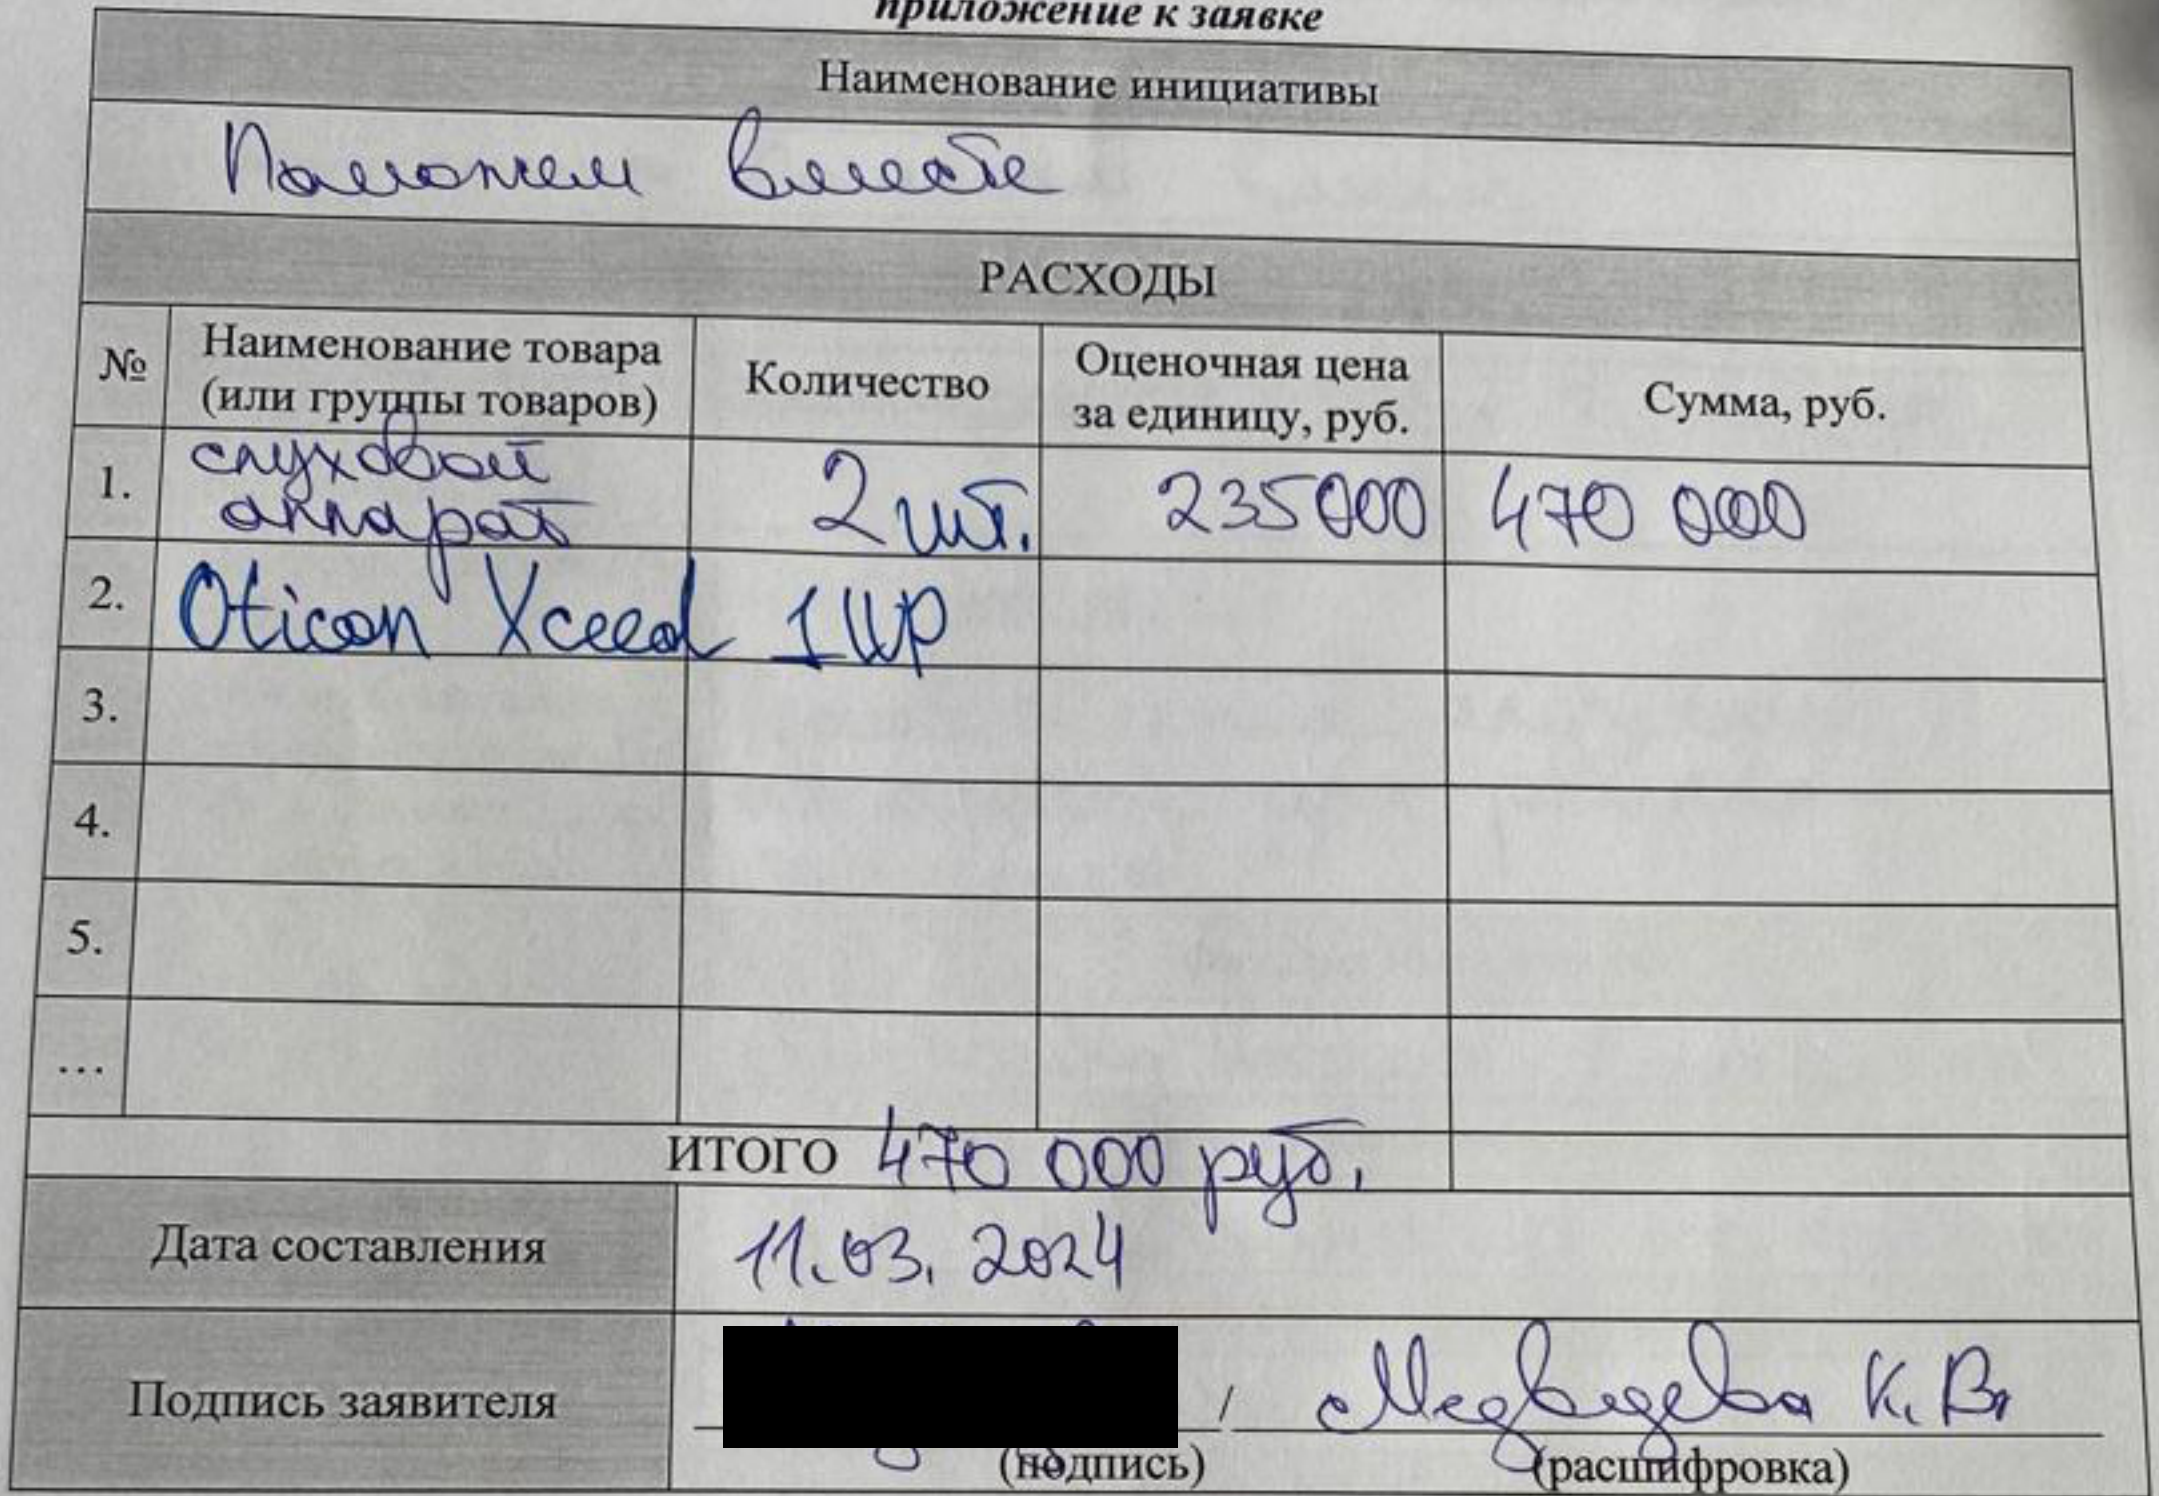 приложение к заявке
Наименование инициативы
Поможем вместе
РАСХОДЫ
№ Наименование товара (или группы товаров) Количество Оценочная цена за единицу, руб. Сумма, руб.
1. слуховой аппарат 2 шт. 235000 470 000
2. Oticon Xceed 1 UP
3.
4.
5.
...
ИТОГО 470 000 руб.
Дата составления 11.03.2024
Подпись заявителя / Медведева К.В.
(подпись) (расшифровка)